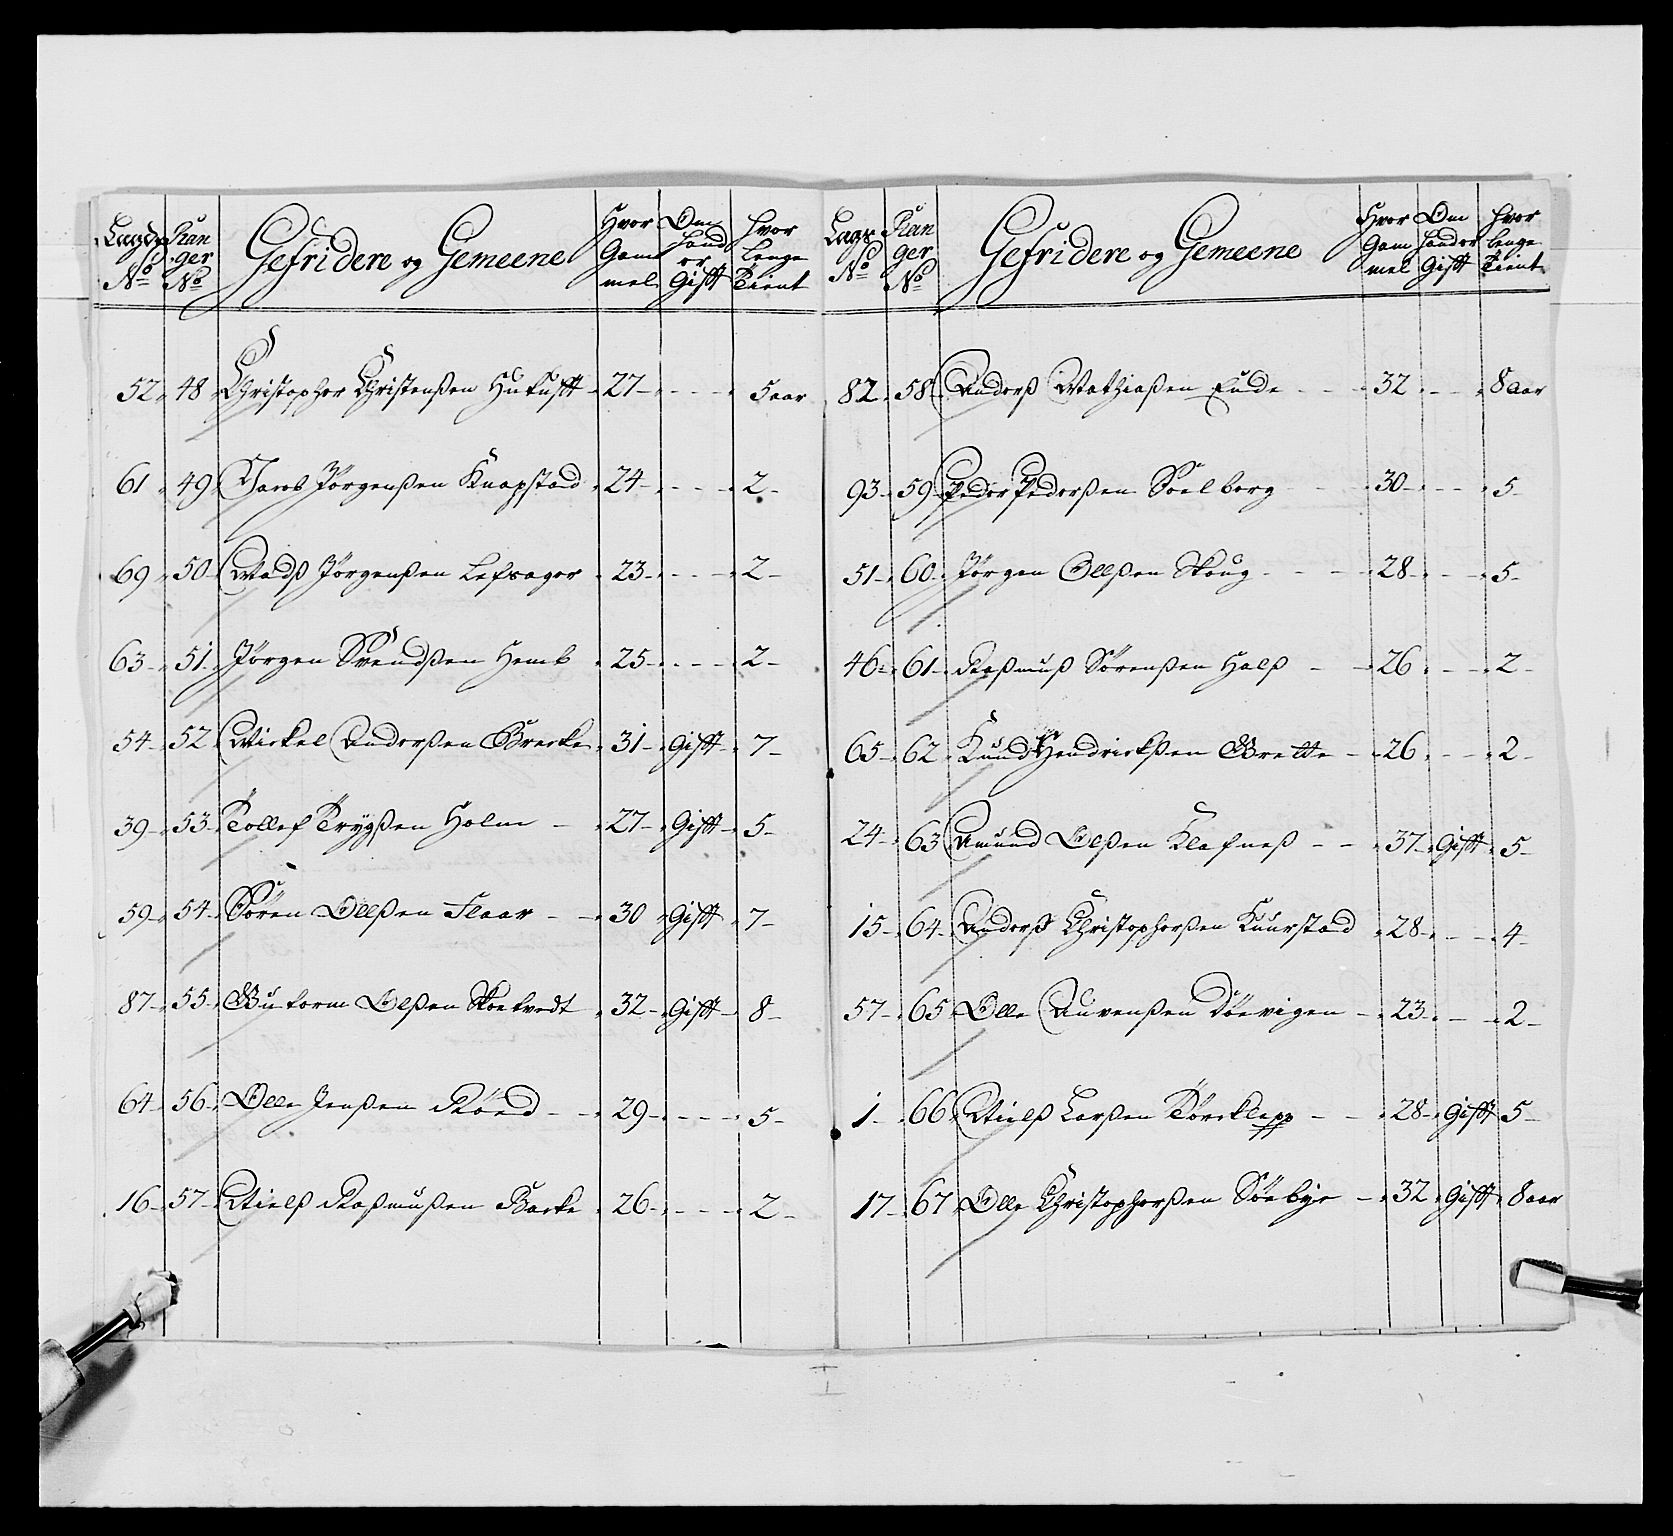 Lagds No Ran ger No Gefridere og Gemeene Hvor Gam mel Om hand er Gifft Hvor Lenge Tient
52 48 Christopher Christenßen Hukust 27 5 aar
61 49 Jacob Jörgenßen Knapstad 24 2
69 50 Madß Jörgenßen Lefsager 23 2
63 51 Jörgen Svendßen Hemb 25 2
54 52 Mickel Anderßen Brecke 31 Gifft 7
39 53 Tollef Trygßen Holm 27 Gifft 5
59 54 Sören Ollßen Flaar 30 Gifft 7
87 55 Gutorm Olßen Skoekvedt 32 Gifft 8
64 56 Olle Jenßen Röed 29 5
16 57 Nielß Raßmußen Barke 26 2
Lags No Ran ger No Gefridere og Gemeene Hvor Gam mel Om hand er Gifft Hvor lenge Tient
82 58 Anderß Mathiaßen Eude 32 8 aar
93 59 Peder Pederßen Soelberg 30 5
51 60 Jörgen Ollßen Skoug 28 5
46 61 Raßmuß Sörenßen Halß 26 2
65 62 Knud Hendrickßen Grette 26 2
24 63 Amund Olßen Klefneß 37 Gifft 5
15 64 Anderß Christopherßen Kuurstad 28 4
57 65 Olle Auvenßen Döevigen 23 2
1 66 Nielß Larßen Törcklepp 28 Gifft 5
17 67 Olle Christopherßen Söebye 32 Gifft 8 aar